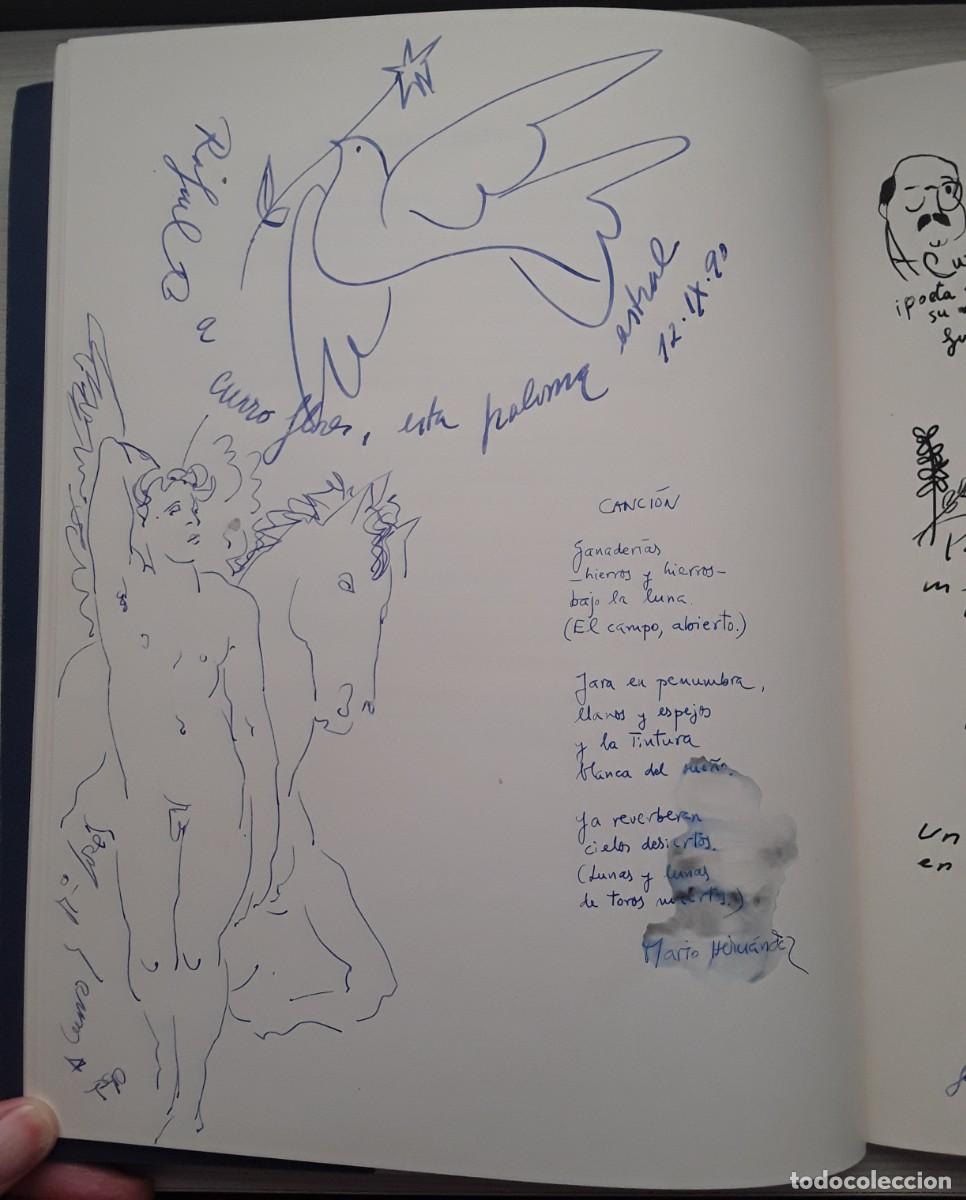 Rafael
a
curro flores, esta paloma
astral
12.IX.90
CANCIÓN
Ganaderías
—hierros y hierros—
bajo la luna.
(El campo, abierto.)
Jara en penumbra,
llanos y espejos
y la Tintura
blanca del sueño.
Ya reverberan
cielos desiertos.
(Lunas y lunas
de toros muertos.)
Mario Hernández
A Cu
¡poeta
su
Un
en
todocoleccion